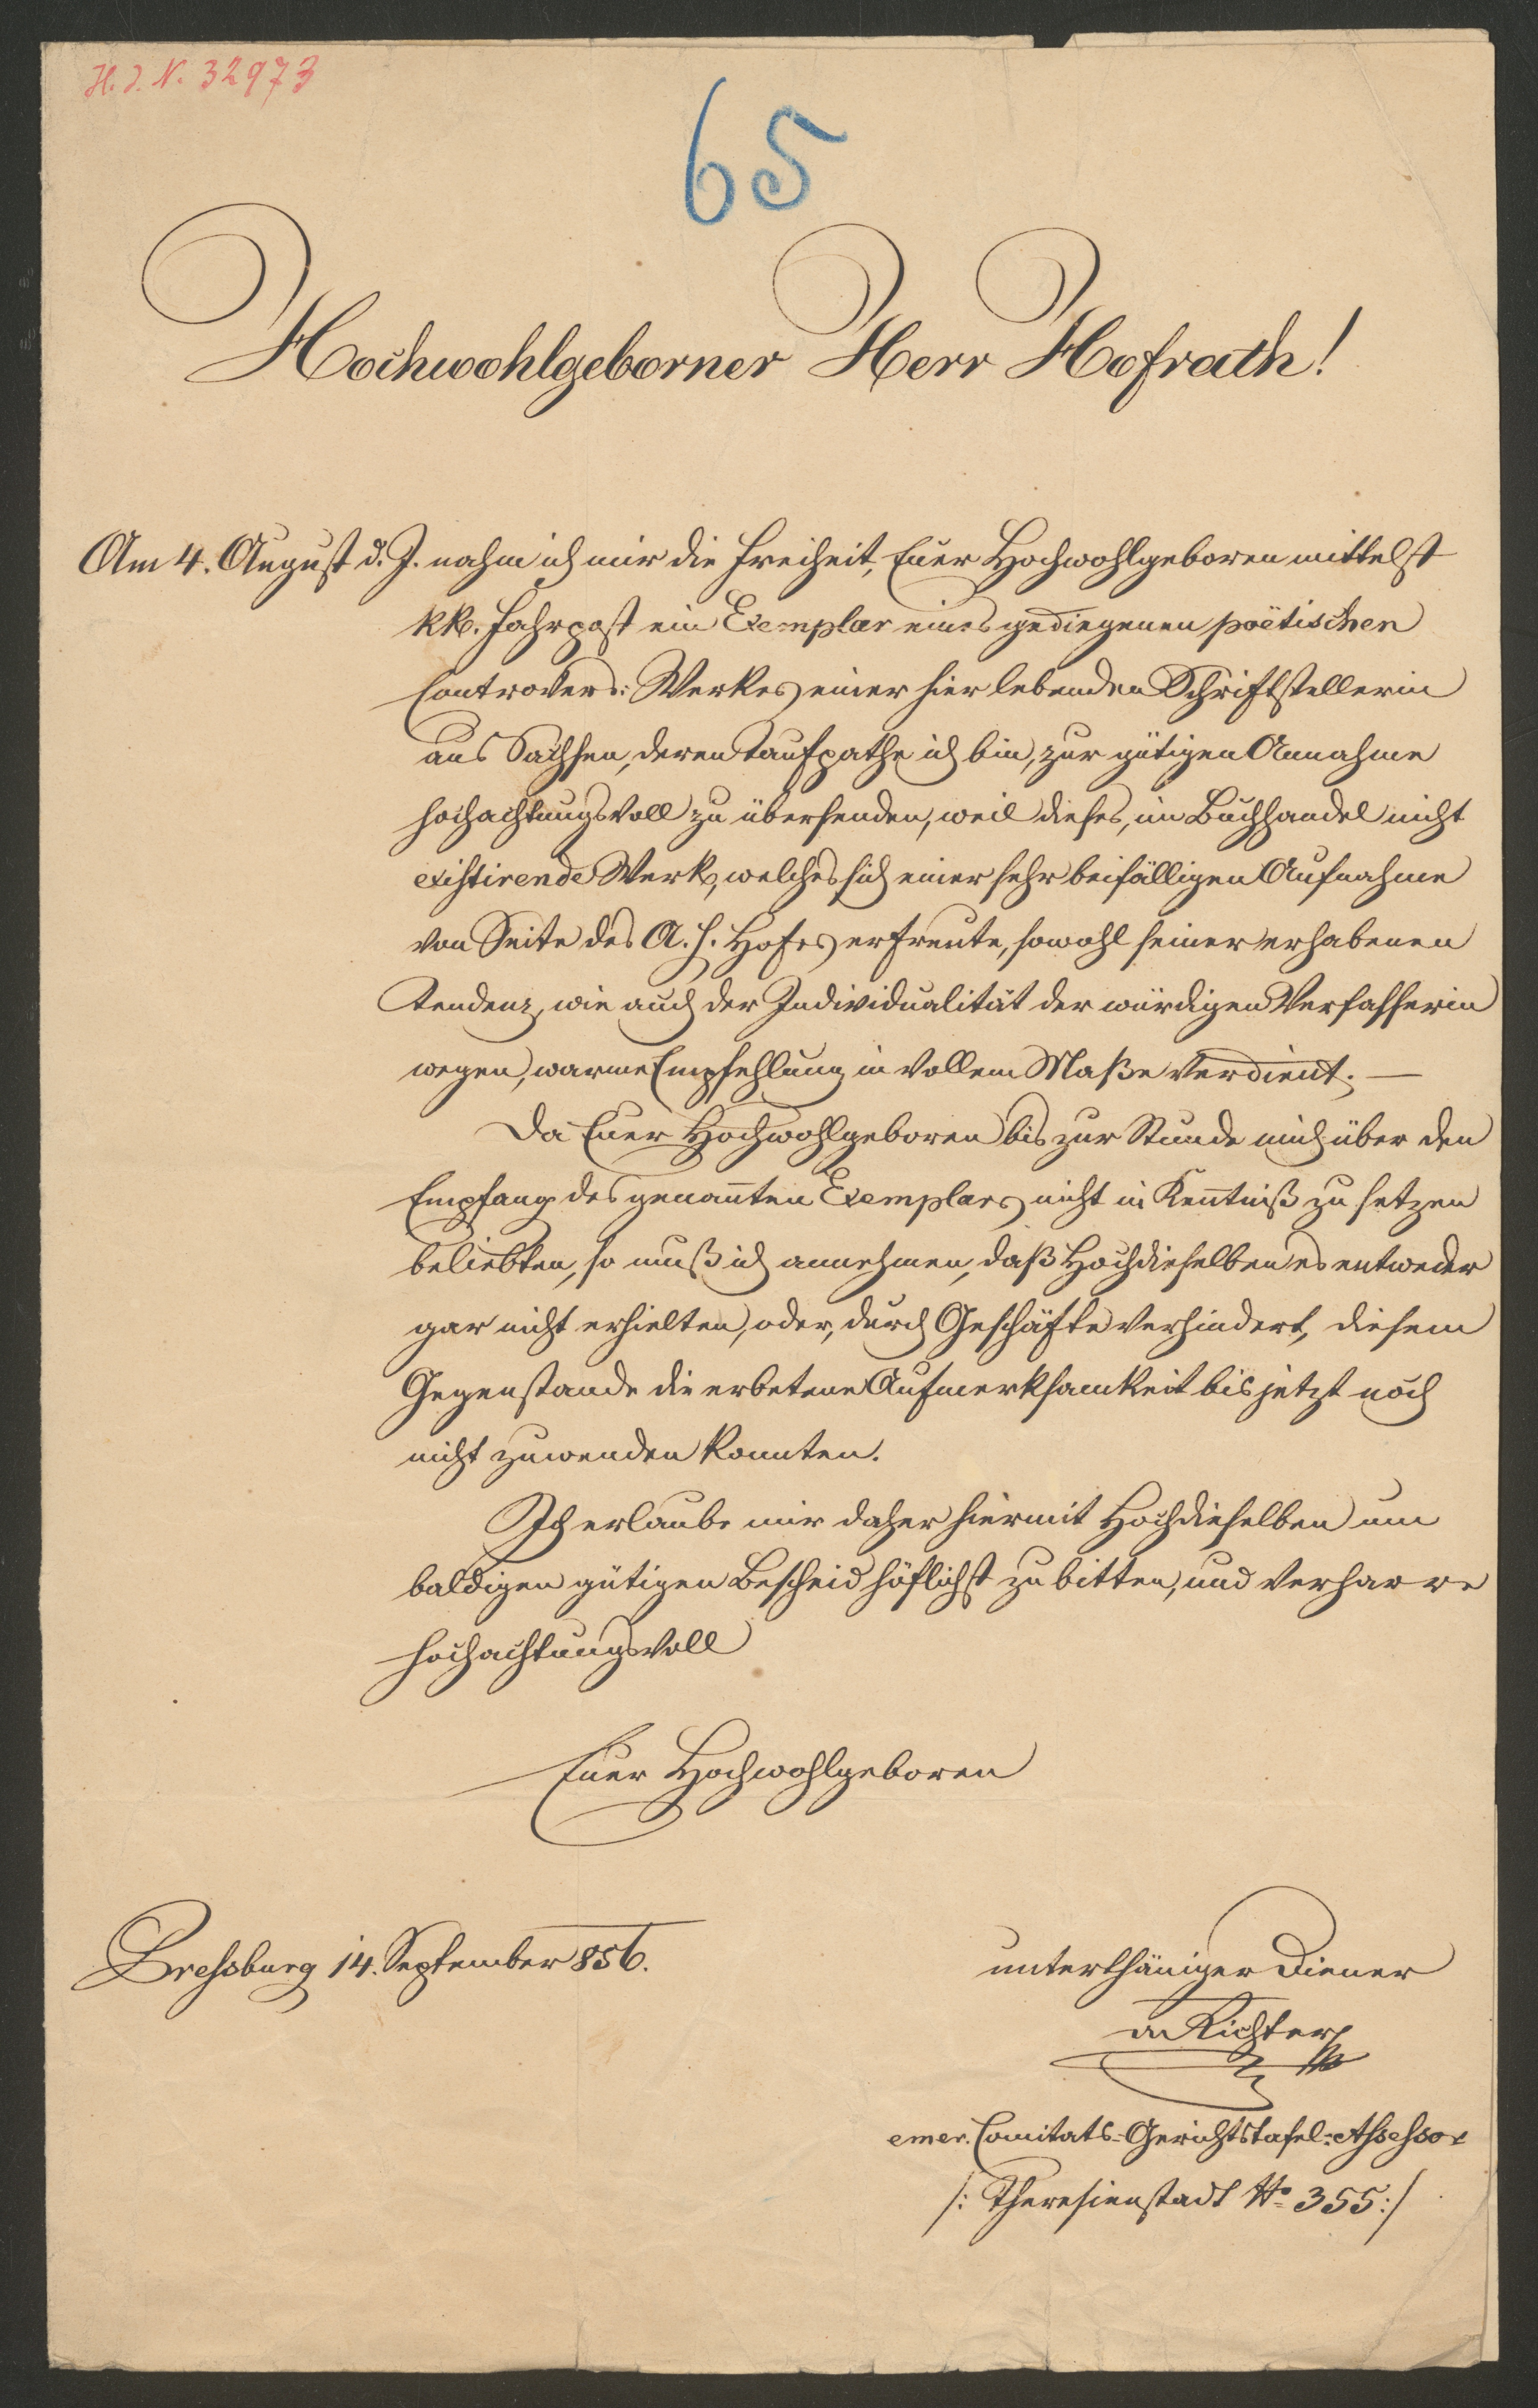 H. I. N. 32973
65
Hochwohlgeborner Herr Hofrath!
Am 4. August d. J. nahm ich mir die Freiheit, Euer Hochwohlgeboren mittelst
kk. Fahrpost ein Exemplar eines gediegenen poëtischen
Controvers: Werkes einer hier lebenden Schriftstellerin
aus Sachsen, deren Taufpathe ich bin, zur gütigen Annahme
hochachtungsvoll zu übersenden, weil dieses, im Buchhandel nicht
existirende Werk, welches sich einer sehr beifälligen Aufnahme
von Seite des A. h. Hofes erfreute, sowohl seiner erhabenen
Tendenz, wie auch der Individualität der würdigen Verfasserin
wegen, warme Empfehlung in vollem Maße verdient. —
Da Euer Hochwohlgeboren bis zur Stunde mich über den
Empfang des genannten Exemplars nicht in Kenntniß zu setzen
beliebten, so muß ich annehmen, daß Hochdieselben es entweder
gar nicht erhielten, oder, durch Geschäfte verhindert, diesem
Gegenstande die erbetene Aufmerksamkeit bis jetzt noch
nicht zuwenden konnten.
Ich erlaube mir daher hiermit Hochdieselben um
baldigen gütigen Bescheid höflichst zu bitten, und verharre
hochachtungsvoll
Euer Hochwohlgeboren
Pressburg 14. September 856.
unterthäniger Diener
Richter
emer. Comitats-Gerichtstafel-Assessor
/: Theresienstadt No 355:/